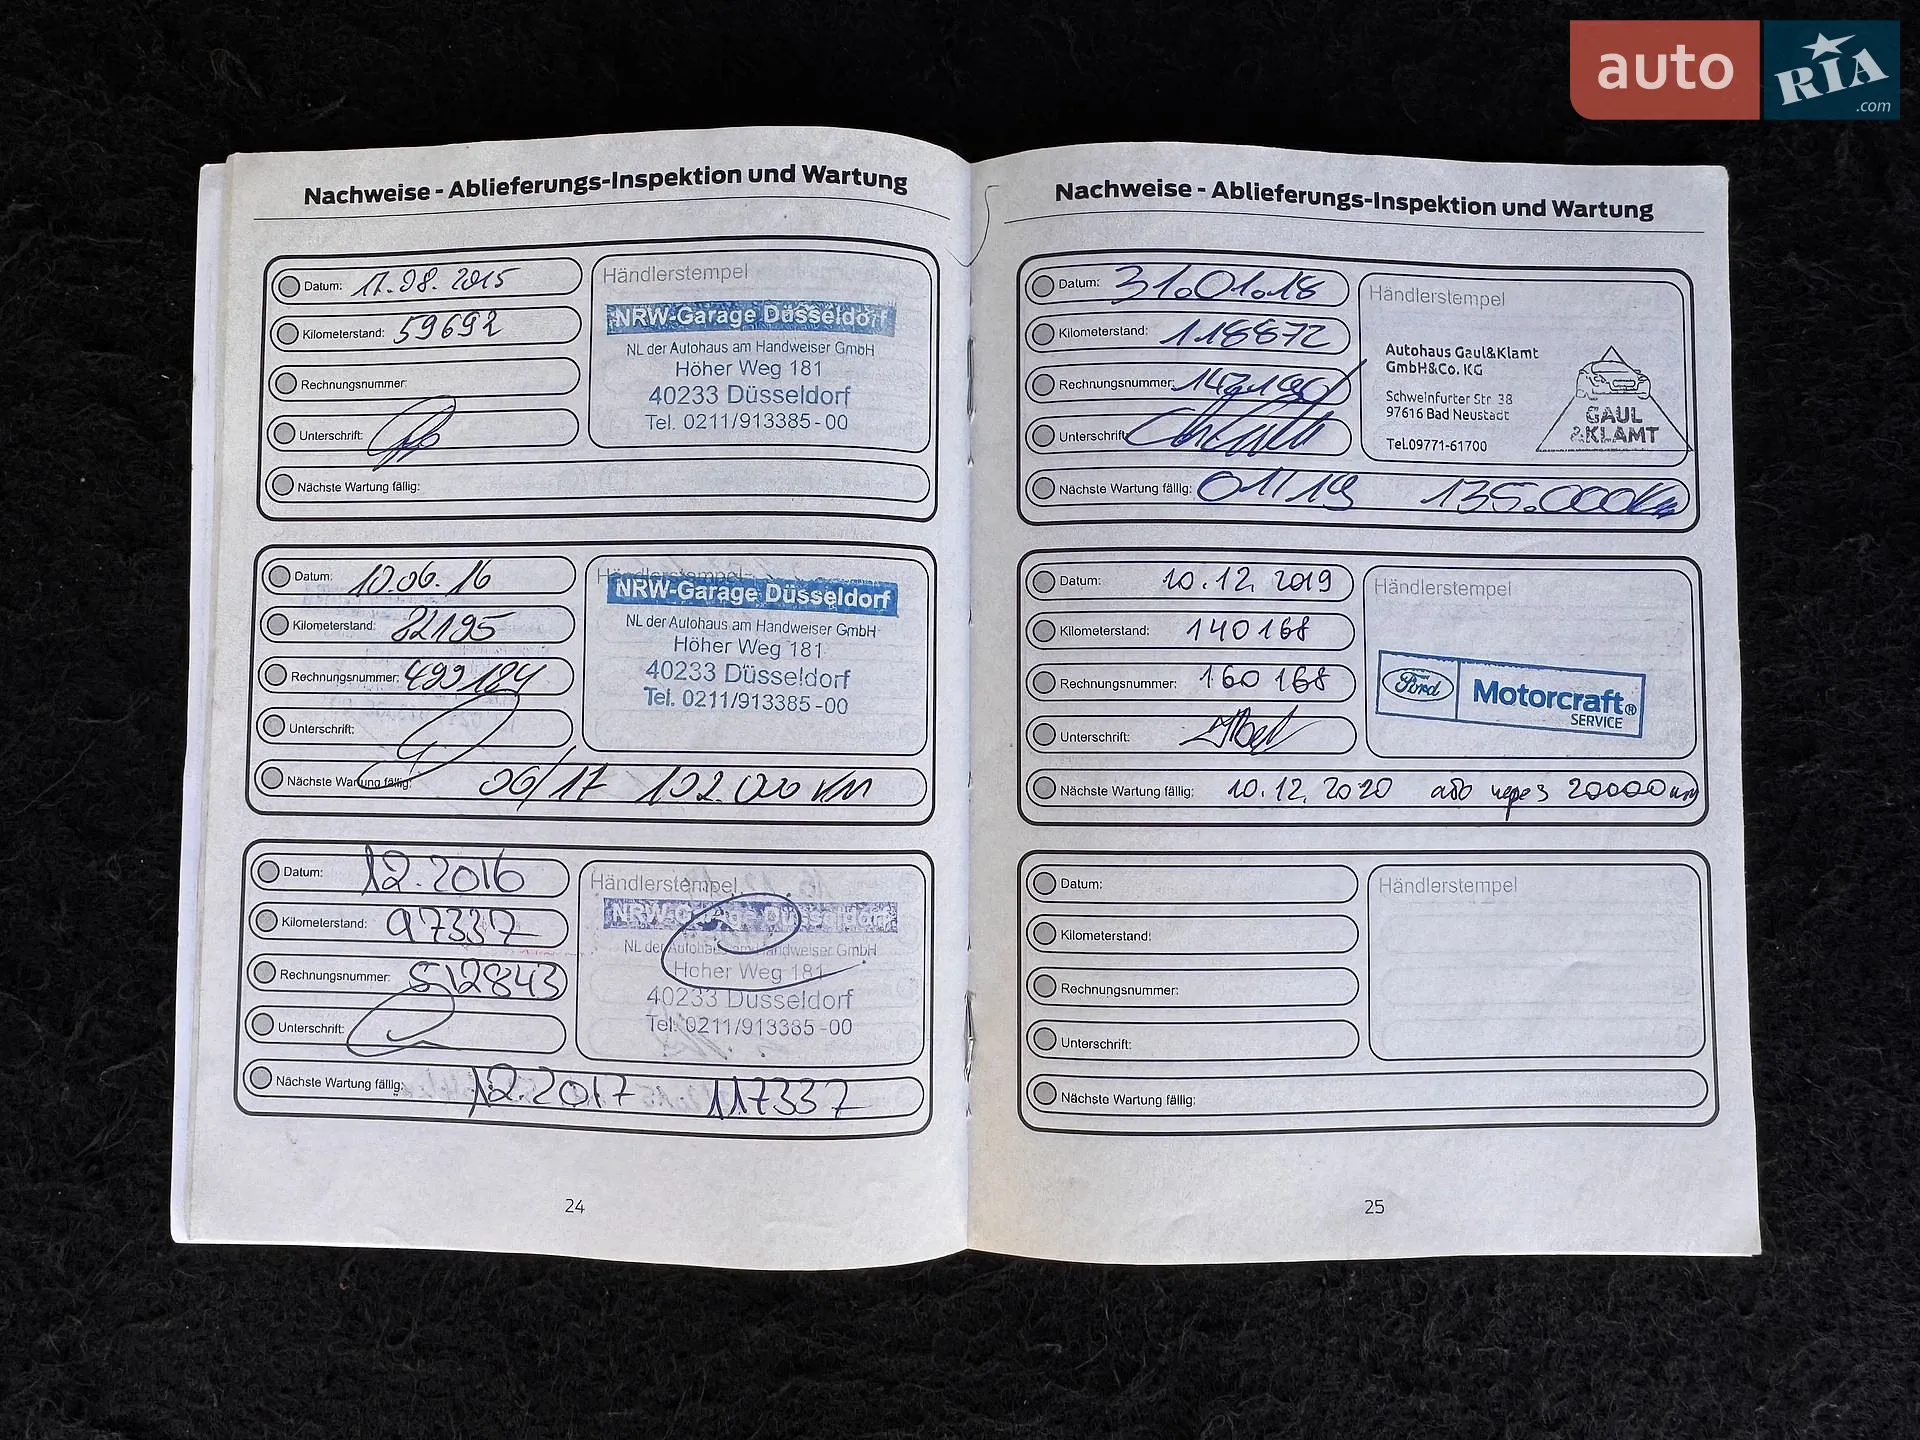 auto RIA.com
Nachweise - Ablieferungs-Inspektion und Wartung
Datum: 17.08.2015
Kilometerstand: 59692
Rechnungsnummer:
Unterschrift:
Nächste Wartung fällig:
Händlerstempel
NRW-Garage Düsseldorf
NL der Autohaus am Handweiser GmbH
Höher Weg 181
40233 Düsseldorf
Tel. 0211/913385-00
Datum: 10.06.16
Kilometerstand: 82195
Rechnungsnummer: 499184
Unterschrift:
Nächste Wartung fällig: 06/17 102.000 KM
Händlerstempel
NRW-Garage Düsseldorf
NL der Autohaus am Handweiser GmbH
Höher Weg 181
40233 Düsseldorf
Tel. 0211/913385-00
Datum: 12.2016
Kilometerstand: 97337
Rechnungsnummer: 512843
Unterschrift:
Nächste Wartung fällig: 12.2017 117337
Händlerstempel
NRW-Garage Düsseldorf
NL der Autohaus am Handweiser GmbH
Höher Weg 181
40233 Düsseldorf
Tel. 0211/913385-00
24
Nachweise - Ablieferungs-Inspektion und Wartung
Datum: 31.01.18
Kilometerstand: 118872
Rechnungsnummer:
Unterschrift:
Nächste Wartung fällig: 01/19 135.000Km
Händlerstempel
Autohaus Gaul&Klamt
GmbH&Co. KG
Schweinfurter Str. 38
97616 Bad Neustadt
Tel.09771-61700
GAUL
&KLAMT
Datum: 10.12.2019
Kilometerstand: 140168
Rechnungsnummer: 160168
Unterschrift:
Nächste Wartung fällig: 10.12.2020 або через 20000 км
Händlerstempel
Ford Motorcraft®
SERVICE
Datum:
Kilometerstand:
Rechnungsnummer:
Unterschrift:
Nächste Wartung fällig:
Händlerstempel
25